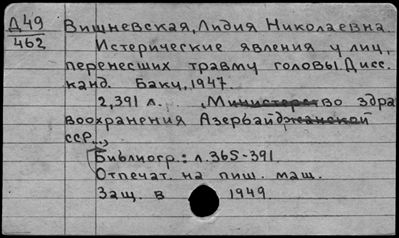 Д49
462
Вишневская, Лидия Николаевна.
Истерические явления у лиц,
перенесших травму головы. Дисс.
канд. Баку, 1947.
2,391 л. ,Министерство здра
воохранения Азербайджанской
ССР..,
Библиогр.: л. 365-391.
Отпечат. на пиш. маш.
Защ. в 1949.